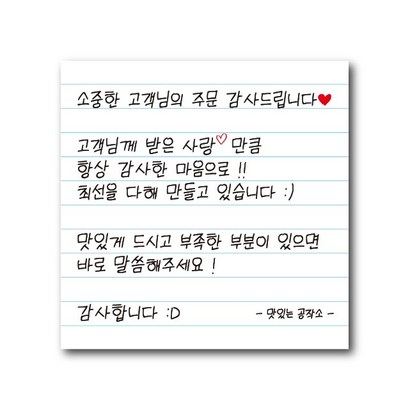 소중한 고객님의 주문 감사드립니다♥
고객님께 받은 사랑♡만큼
항상 감사한 마음으로 !!
최선을 다해 만들고 있습니다 :)
맛있게 드시고 부족한 부분이 있으면
바로 말씀해주세요 !
감사합니다 :D
- 맛있는 공작소 -